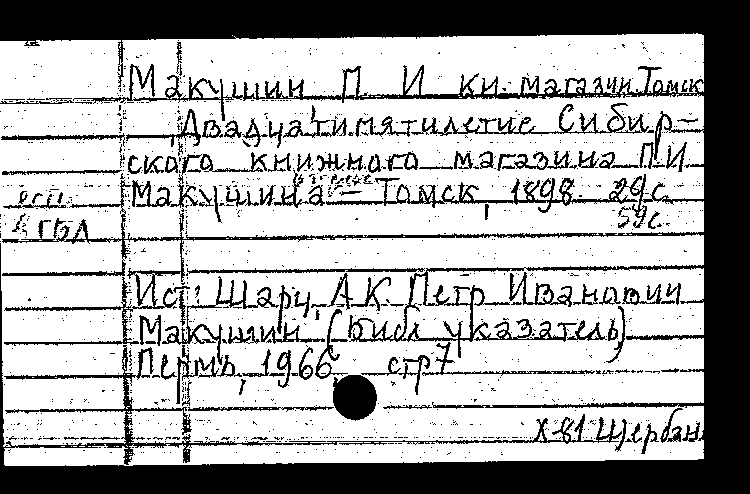 Макушин П. И кн. магазин. Томск
Двадцатипятилетие Сибир-
ского книжного магазина П И
в Томске
Макушина – Томск, 1898. 29с.
59с.
есть
в ГБЛ
Ист: Шарц, А.К. Петр Иванович
Макушин (библ указатель)
Пермь, 1966, стр7
X-81 Щербан